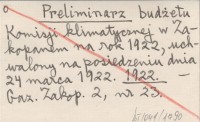 o
Preliminarz budżetu
Komisji klimatycznej w Za-
kopanem na rok 1922, uch-
walony na posiedzeniu dnia
24 marca 1922. 1922. —
Gaz. Zakop. 2, nr 23.